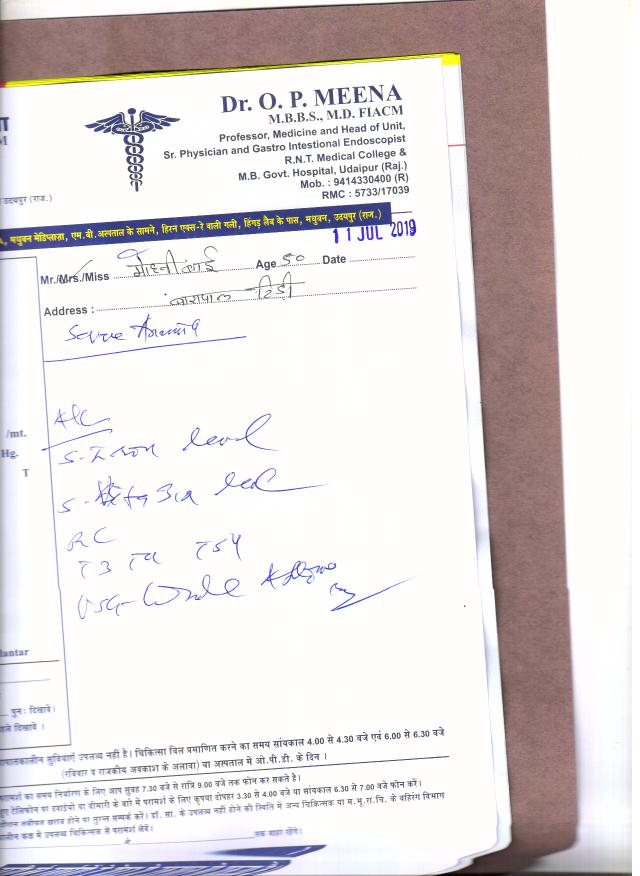 Dr. O. P. MEENA
M.B.B.S., M.D. FIACM
Professor, Medicine and Head of Unit,
Sr. Physician and Gastro Intestional Endoscopist
R.N.T. Medical College &
M.B. Govt. Hospital, Udaipur (Raj.)
Mob. : 9414330400 (R)
RMC : 5733/17039
उदयपुर (राज.)
मधुबन मेडिप्लाज़ा, एम.बी.अस्पताल के सामने, हिरन एक्स-रे वाली गली, हिंगड़ लैब के पास, मधुबन, उदयपुर (राज.)
11 JUL 2019
Mr./Mrs./Miss Age 50 Date
Address :
Severe
/mt.
Hg.
S-Iron level
T
S-
RC
T3 T4 TSH
USG- Whole
lantar
पुनः दिखावें।
दिखावें ।
सुविधाएँ उपलब्ध नहीं है। चिकित्सा बिल प्रमाणित करने का समय सांयकाल 4.00 से 4.30 बजे एवं 6.00 से 6.30 बजे
(रविवार व राजकीय अवकाश के अलावा) या अस्पताल में ओ.पी.डी. के दिन ।
परामर्श का समय निर्धारण के लिए आप सुबह 7.30 बजे से रात्रि 9.00 बजे तक फोन कर सकते है।
टेलिफोन पर दवाईयो या बीमारी के बारे में परामर्श के लिए कृपया दोपहर 3.30 से 4.00 बजे या सांयकाल 6.30 से 7.00 बजे फोन करें।
तबीयत खराब होने पर तुरन्त सम्पर्क करें। डॉ. सा. के उपलब्ध नहीं होने की स्थिति में अन्य चिकित्सक या म.भू.रा.चि. के बहिरंग विभाग
कक्ष में उपलब्ध चिकित्सक से परामर्श लेवें।
से तक बाहर रहेंगे।